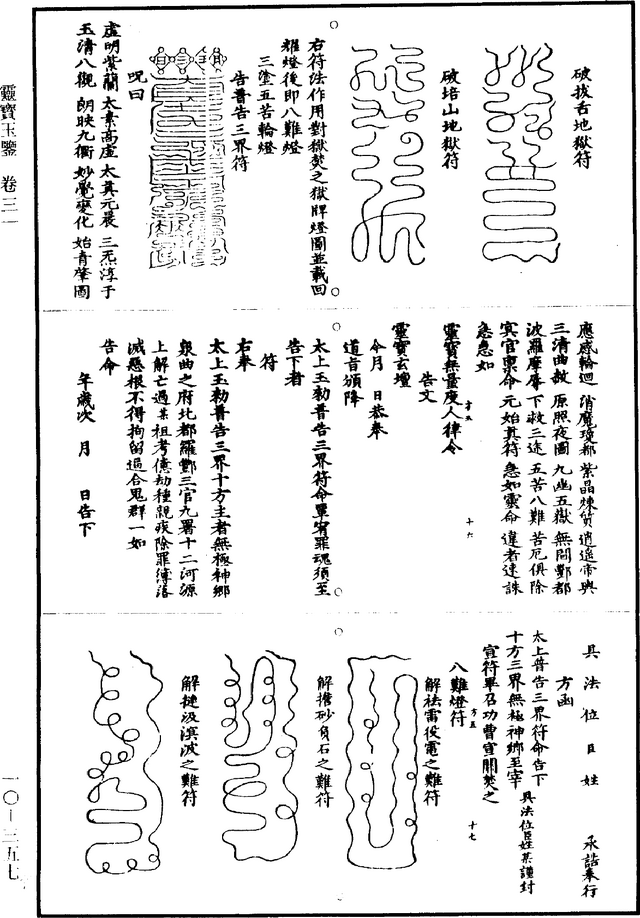 靈寶玉鑒 卷三一
破拔舌地獄符
破培山地獄符
右符法作用對獄焚之獄牌燈圖並載回
耀燈後即八難燈
三塗五苦輪燈
告普告三界符
呪曰
虛明紫蘭 太素高虛 太真元晨 三炁淳于
玉清八觀 朗映九衢 妙覺變化 始青肇圖
應感輪迴 消魔瓊都 紫晶煉質 逍遙帝輿
三清曲赦 原照夜圖 九幽五獄 無間酆都
波羅摩辱 下救三途 五苦八難 苦厄俱除
冥官稟命 元始真符 急如靈命 違者速誅
急急如
靈寶無量度人律令
十六
告文
靈寶玄壇
今月 日恭奉
道旨頒降
太上玉勑普告三界符命單宥罪魂須至
告下者
符
右奉
太上玉勑普告三界十方主者無極神鄉
泉曲之府北都羅酆三官九署十二河源
上解亡過某祖考億劫種親疾除罪簿落
滅惡根不得拘留逼合鬼群一如
告命
年歲次 月 日告下
具法位臣姓 承誥奉行
方函
太上普告三界符命告下
十方三界無極神鄉至宰 具法位臣姓某謹封
宣符畢召功曹宣關焚之
八難燈符
十七
解祛雷役電之難符
解擔砂負石之難符
解搥汲溟波之難符
一〇—三五七